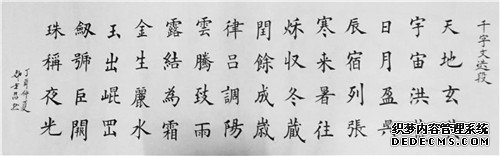 千字文选段
天地玄
宇宙洪
日月盈昃
辰宿列張
寒来暑往
秌収冬蔵
閏餘成歳
律吕調陽
雲騰致雨
露結為霜
金生麗水
玉出崐岡
劔號巨闕
珠稱夜光
丁酉仲夏
织梦内容管理系统
DEDECMS.COM